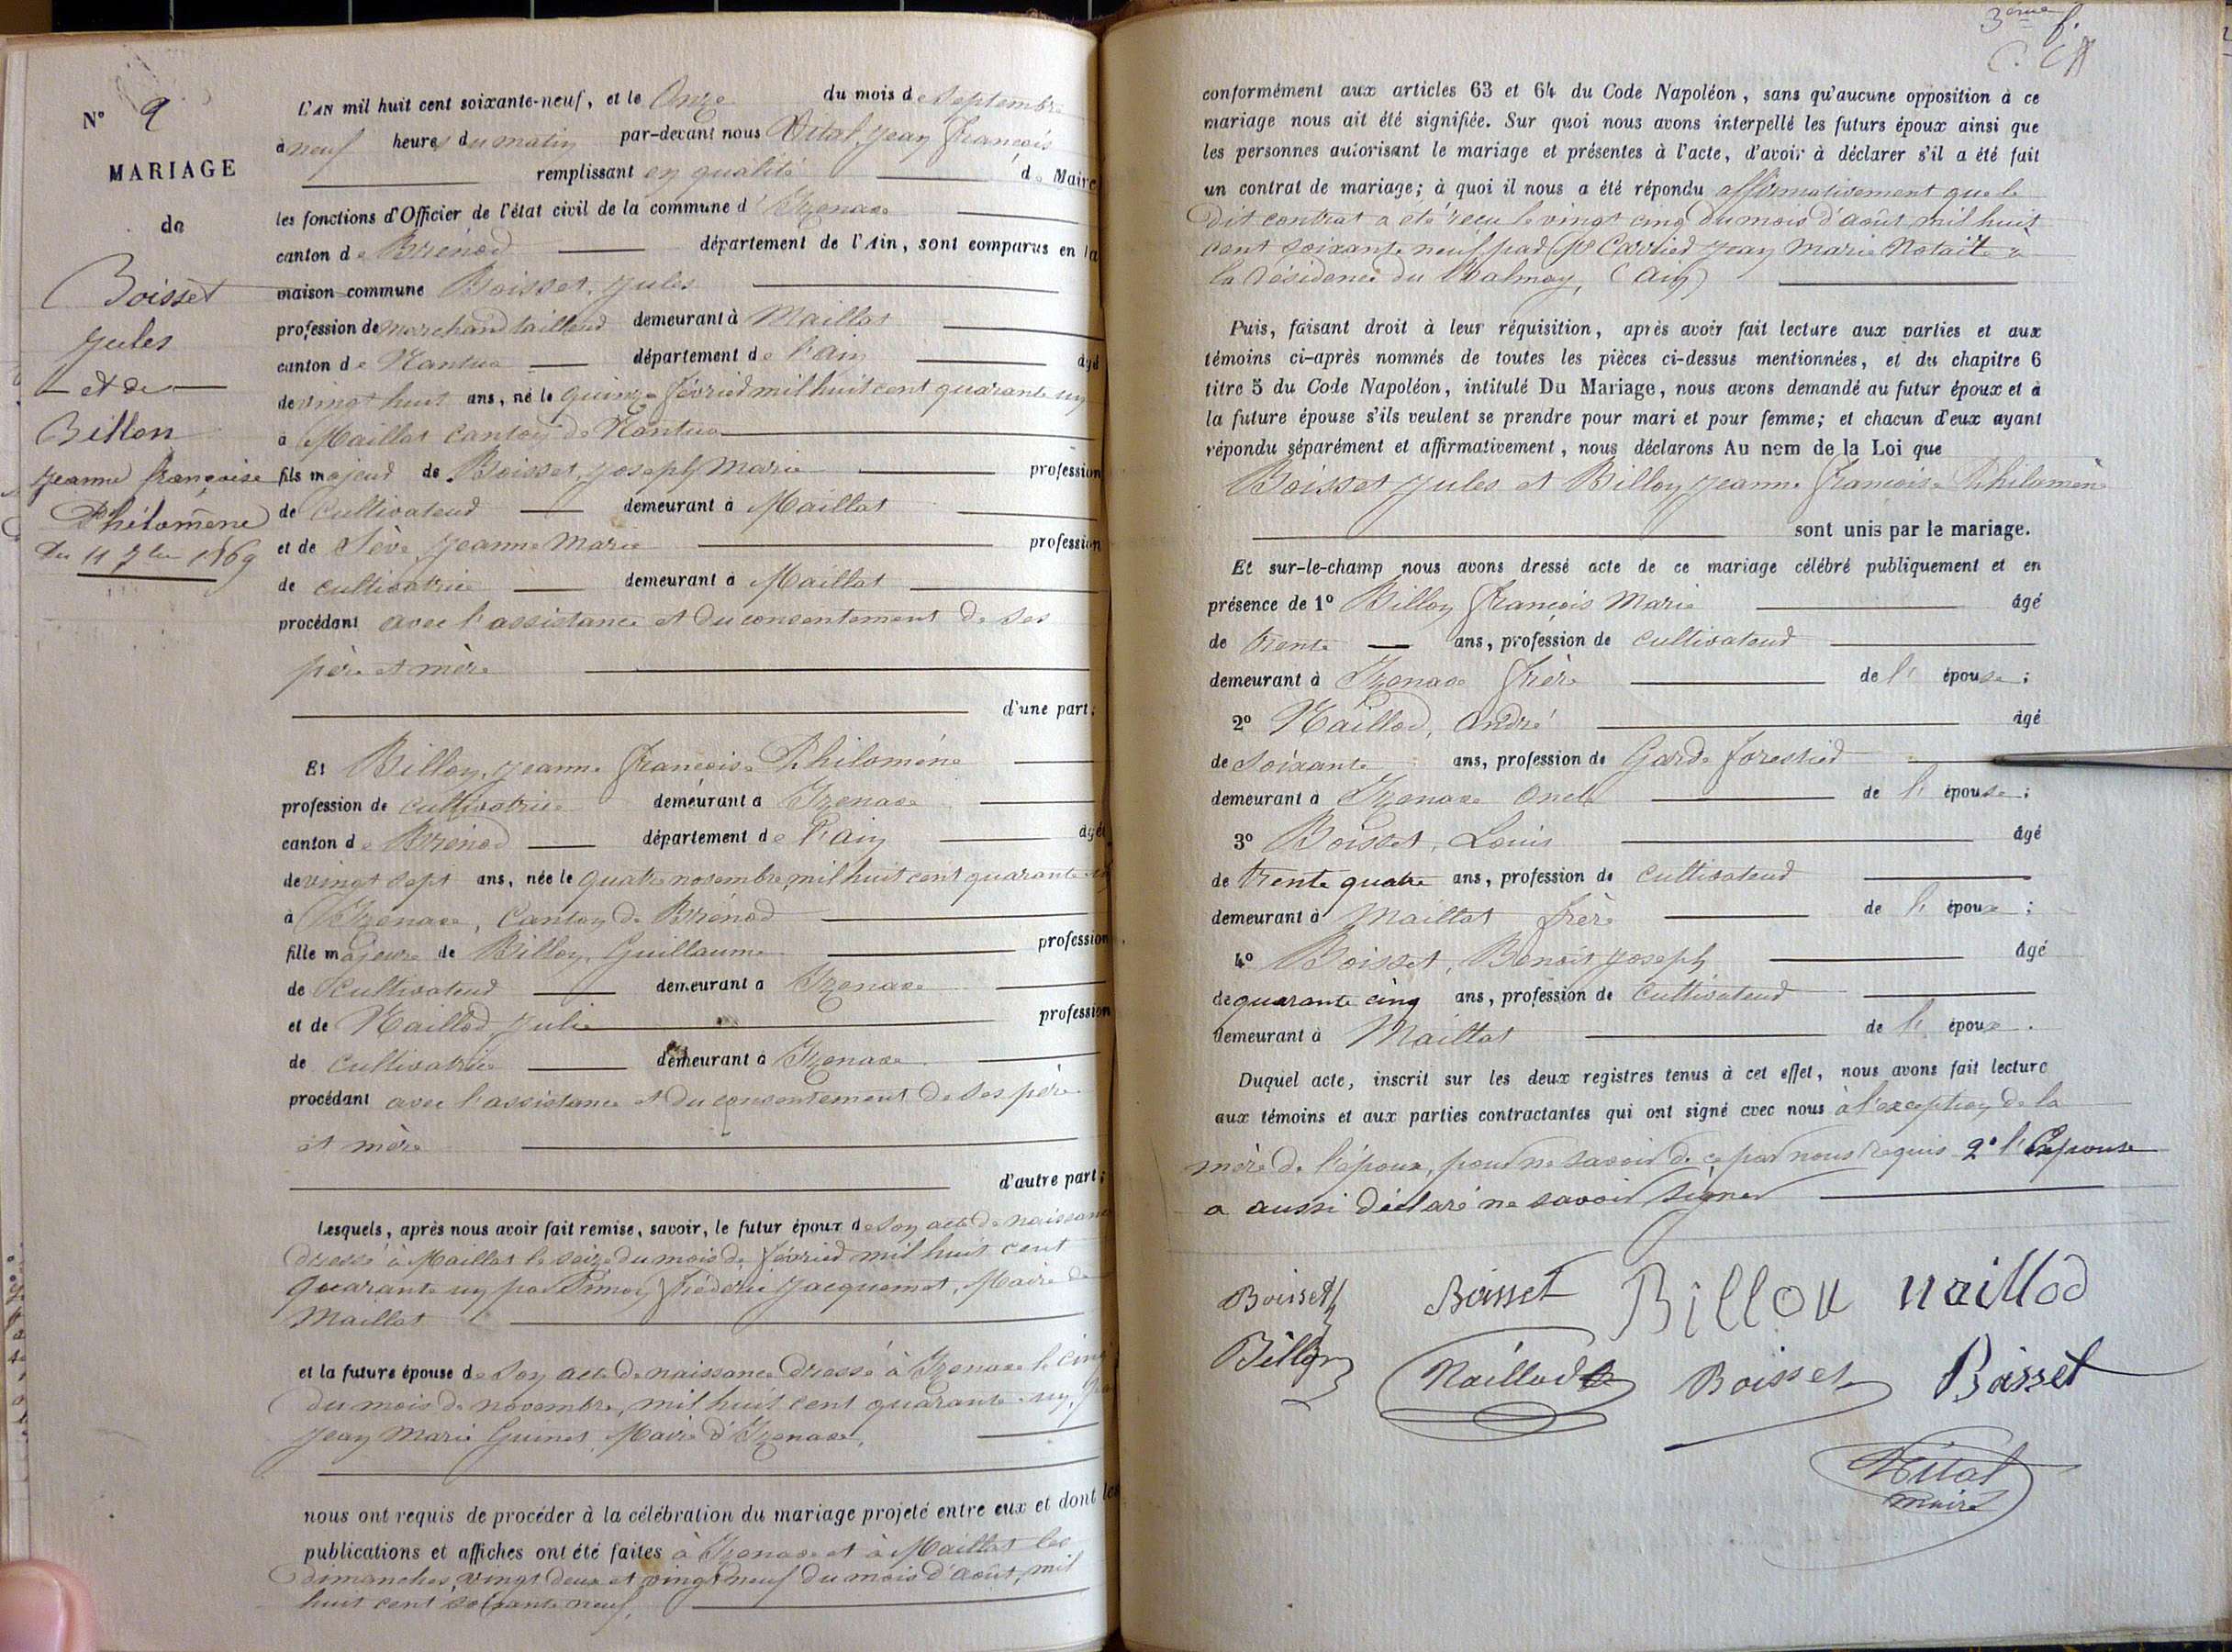 N° 9
MARIAGE
de
Boisset
Jules
et de
Billon
Jeanne françoise
Philomène
du 11 7bre 1869
L'AN mil huit cent soixante-neuf, et le Onze du mois de Septembre
à neuf heures du matin par-devant nous Vital Jean François
remplissant en qualité de Maire
les fonctions d'Officier de l'état civil de la commune d'Izenave
canton de Brénod département de l'Ain, sont comparus en la
maison commune Boisset, Jules
profession de marchand tailleur demeurant à Maillat
canton de Nantua département de l'ain âgé
de vingt huit ans, né le quinze février mil huit cent quarante un
à Maillat canton de Nantua
fils majeur de Boisset, Joseph Marie profession
de Cultivateur demeurant à Maillat
et de Sève Jeanne Marie profession
de cultivatrice demeurant à Maillat
procédant avec l'assistance et du consentement de ses
père et mère
d'une part;
Et Billon, Jeanne Françoise Philomène
profession de cultivatrice demeurant à Izenave
canton de Brénod département de l'ain âgée
de vingt sept ans, née le quatre novembre, mil huit cent quarante un
à Izenave, Canton de Brénod
fille majeure de Billon, Guillaume profession
de Cultivateur demeurant à Izenave
et de Naillod Julie profession
de cultivatrice demeurant à Izenave
procédant avec l'assistance et du consentement de ses père
et mère
d'autre part;
Lesquels, après nous avoir fait remise, savoir, le futur époux de son acte de naissance
dressé à Maillat le seize du mois de février mil huit cent
quarante un par Simon Frédéric Jacquemet, Maire de
Maillat
et la future épouse de son acte de naissance dressé à Izenave le cinq
du mois de novembre, mil huit cent quarante un, par
Jean Marie Guinet, Maire d'Izenave,
nous ont requis de procéder à la célébration du mariage projeté entre eux et dont les
publications et affiches ont été faites à Izenave et à Maillat les
dimanches, vingt deux et vingt neuf du mois d'août, mil
huit cent soixante neuf,
3ème f.
conformément aux articles 63 et 64 du Code Napoléon, sans qu'aucune opposition à ce
mariage nous ait été signifiée. Sur quoi nous avons interpellé les futurs époux ainsi que
les personnes autorisant le mariage et présentes à l'acte, d'avoir à déclarer s'il a été fait
un contrat de mariage; à quoi il nous a été répondu affirmativement que le
dit contrat a été reçu le vingt cinq du mois d'août mil huit
cent soixante neuf par Me Carrier Jean Marie Notaire à
la résidence du Balmay, (Ain)
Puis, faisant droit à leur réquisition, après avoir fait lecture aux parties et aux
témoins ci-après nommés de toutes les pièces ci-dessus mentionnées, et du chapitre 6
titre 5 du Code Napoléon, intitulé Du Mariage, nous avons demandé au futur époux et à
la future épouse s'ils veulent se prendre pour mari et pour femme; et chacun d'eux ayant
répondu séparément et affirmativement, nous déclarons Au nom de la Loi que
Boisset Jules et Billon Jeanne Françoise Philomène
sont unis par le mariage.
Et sur-le-champ nous avons dressé acte de ce mariage célébré publiquement et en
présence de 1° Billon François Marie âgé
de trente ans, profession de cultivateur
demeurant à Izenave frère de l'épouse;
2° Naillod, André âgé
de soixante ans, profession de Garde forestier
demeurant à Izenave oncle de l'épouse;
3° Boisset, Louis âgé
de trente quatre ans, profession de cultivateur
demeurant à Maillat frère de l'époux;
4° Boisset, Benoit Joseph âgé
de quarante cinq ans, profession de Cultivateur
demeurant à Maillat de l'époux.
Duquel acte, inscrit sur les deux registres tenus à cet effet, nous avons fait lecture
aux témoins et aux parties contractantes qui ont signé avec nous à l'exception de la
mère de l'époux, pour ne savoir de ce par nous requis 2° l'Epouse
a aussi déclaré ne savoir signer
Boisset Boisset Billon naillod
Billon Naillod Boisset Boisset
Vital
maire